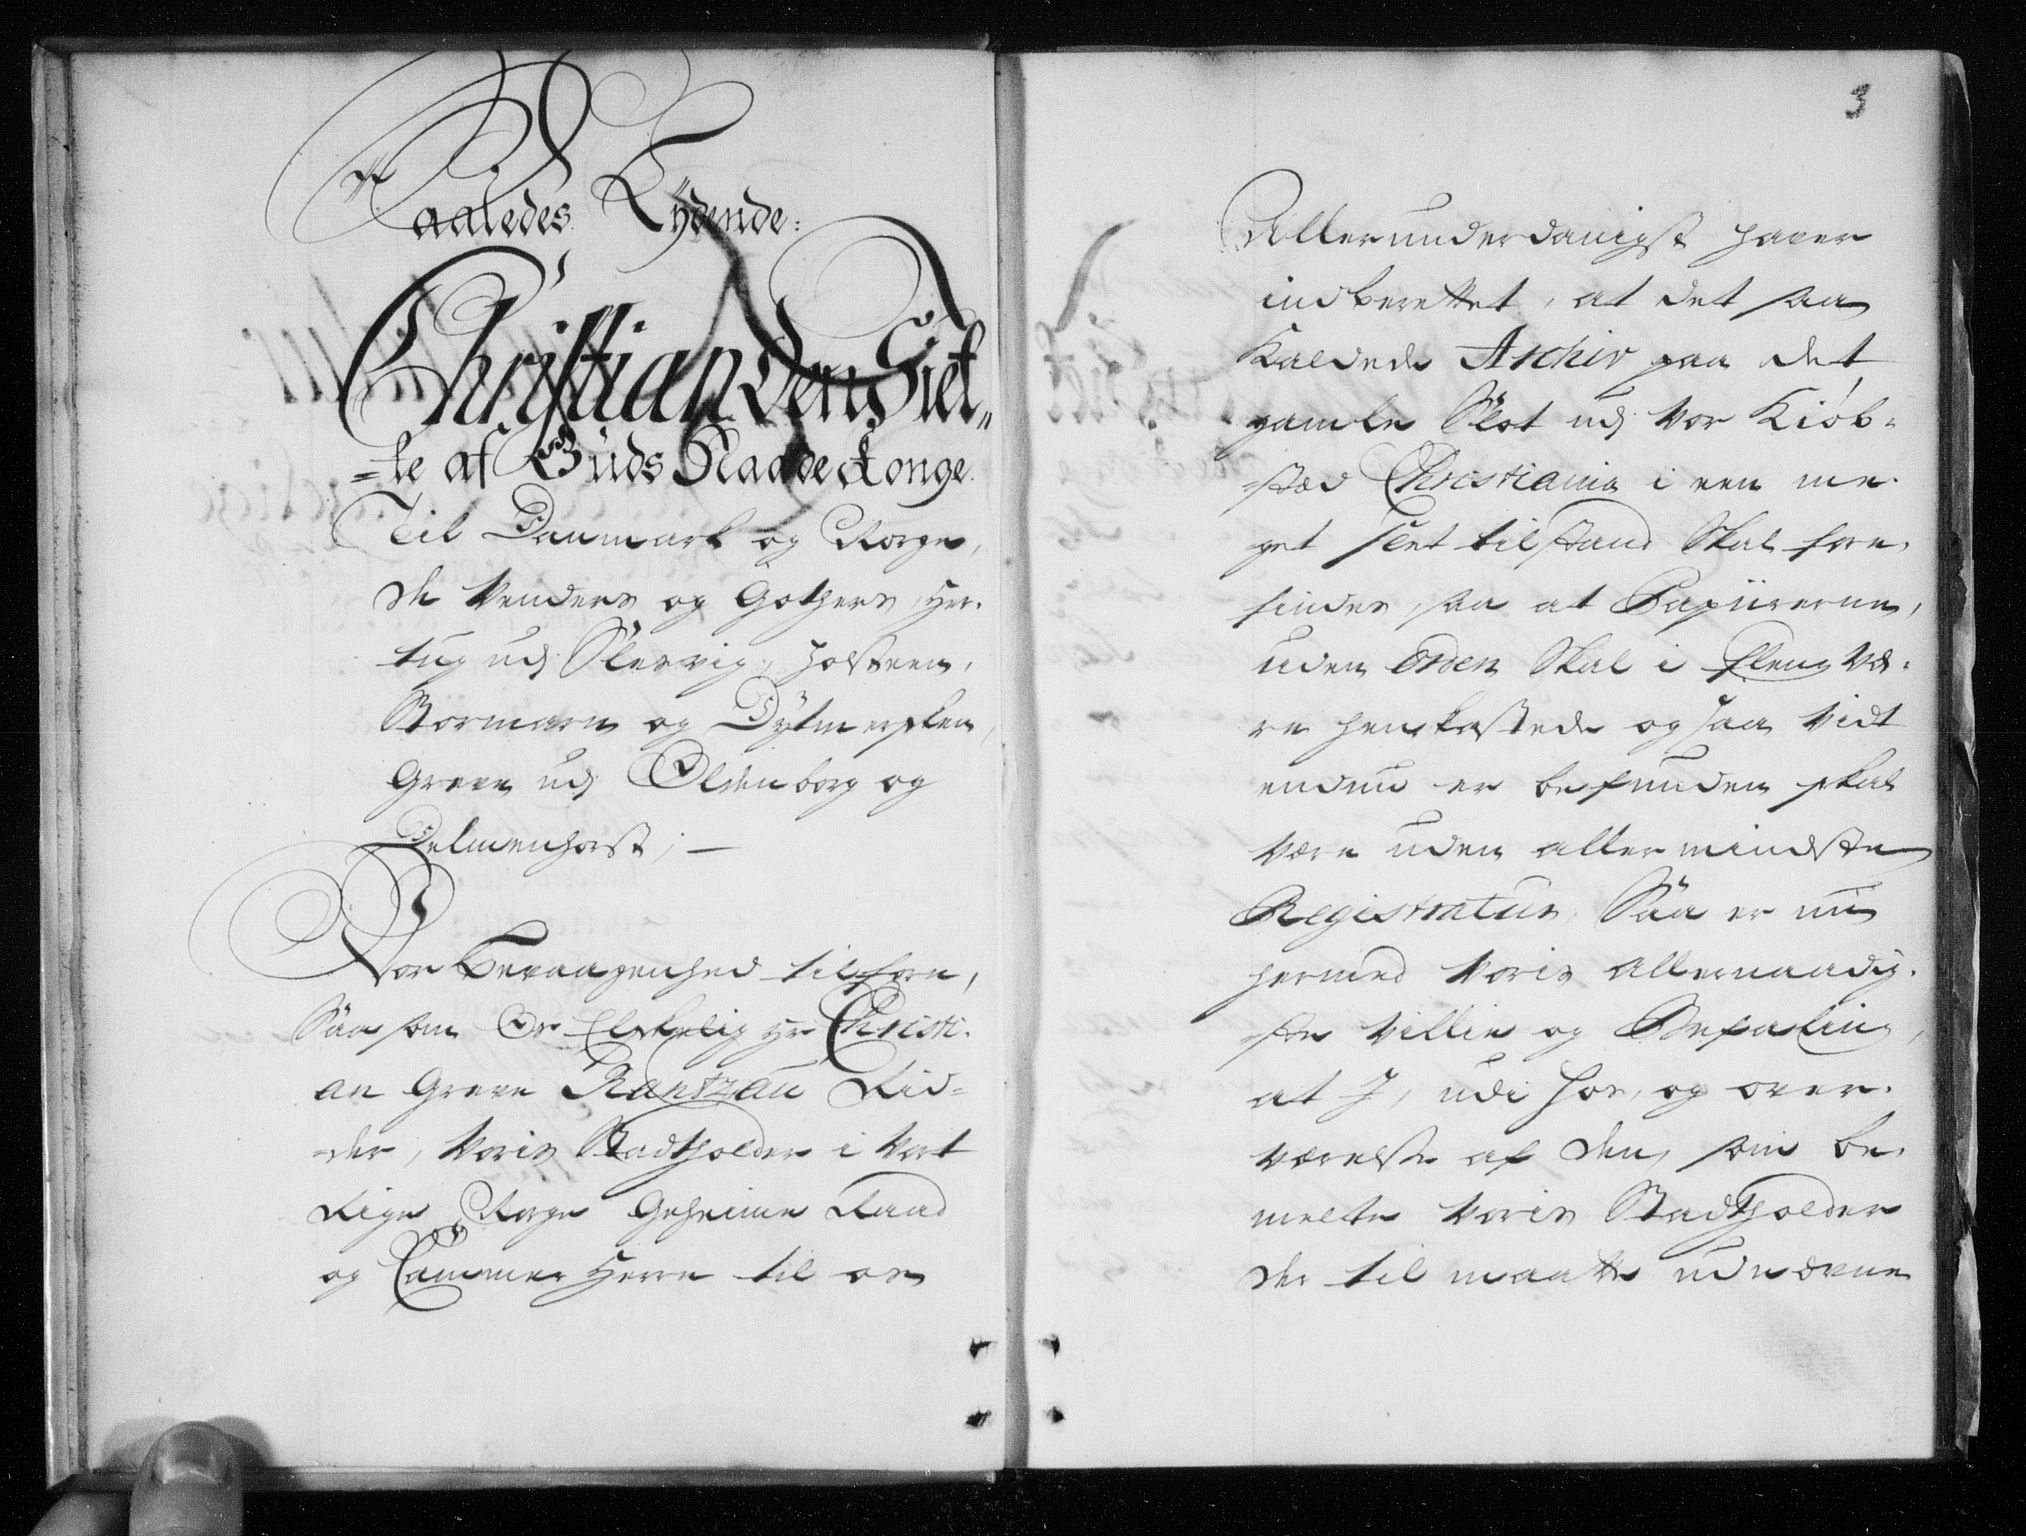 Saaledes Lÿdende:
Christian Den Siet„
=te af Guds Naade Konge
Til Danmark og Norge,
de Venders og Gothers, Her-
tug udj Slesvig, Holsteen,
Stormarn og Dÿtmersken,
Greve udj Oldenborg og
Delmenhorst; —
Vor Bevaagenhed tilforn,
Saasom Os Elskelig Hr Christi-
an Greve Rantzau Rid=
=der, Voris Stadtholder i Vort
Rige Norge Geheime Raad
og Cammer Herre til os
3
Allerunderdanigst haver
indberettet, at det saa
Kaldede Archiv paa det
gamle Slot udj Vor Kiöb=
=stæd Christiania i een me-
get slet tilstand Skal fore-
findes, saa at Papiirerne,
uden Orden Skal i fleng Væ-
re henkastede og saa vidt
endnu er befunden skal
være uden allermindste
Registratur, Saa er nu
hermed Voris Allernaadig-
ste Villie og Befaling,
at I, udi Hos, og over-
værelse af den, som be-
melte Voris Stadtholder
der til maatte udnævne